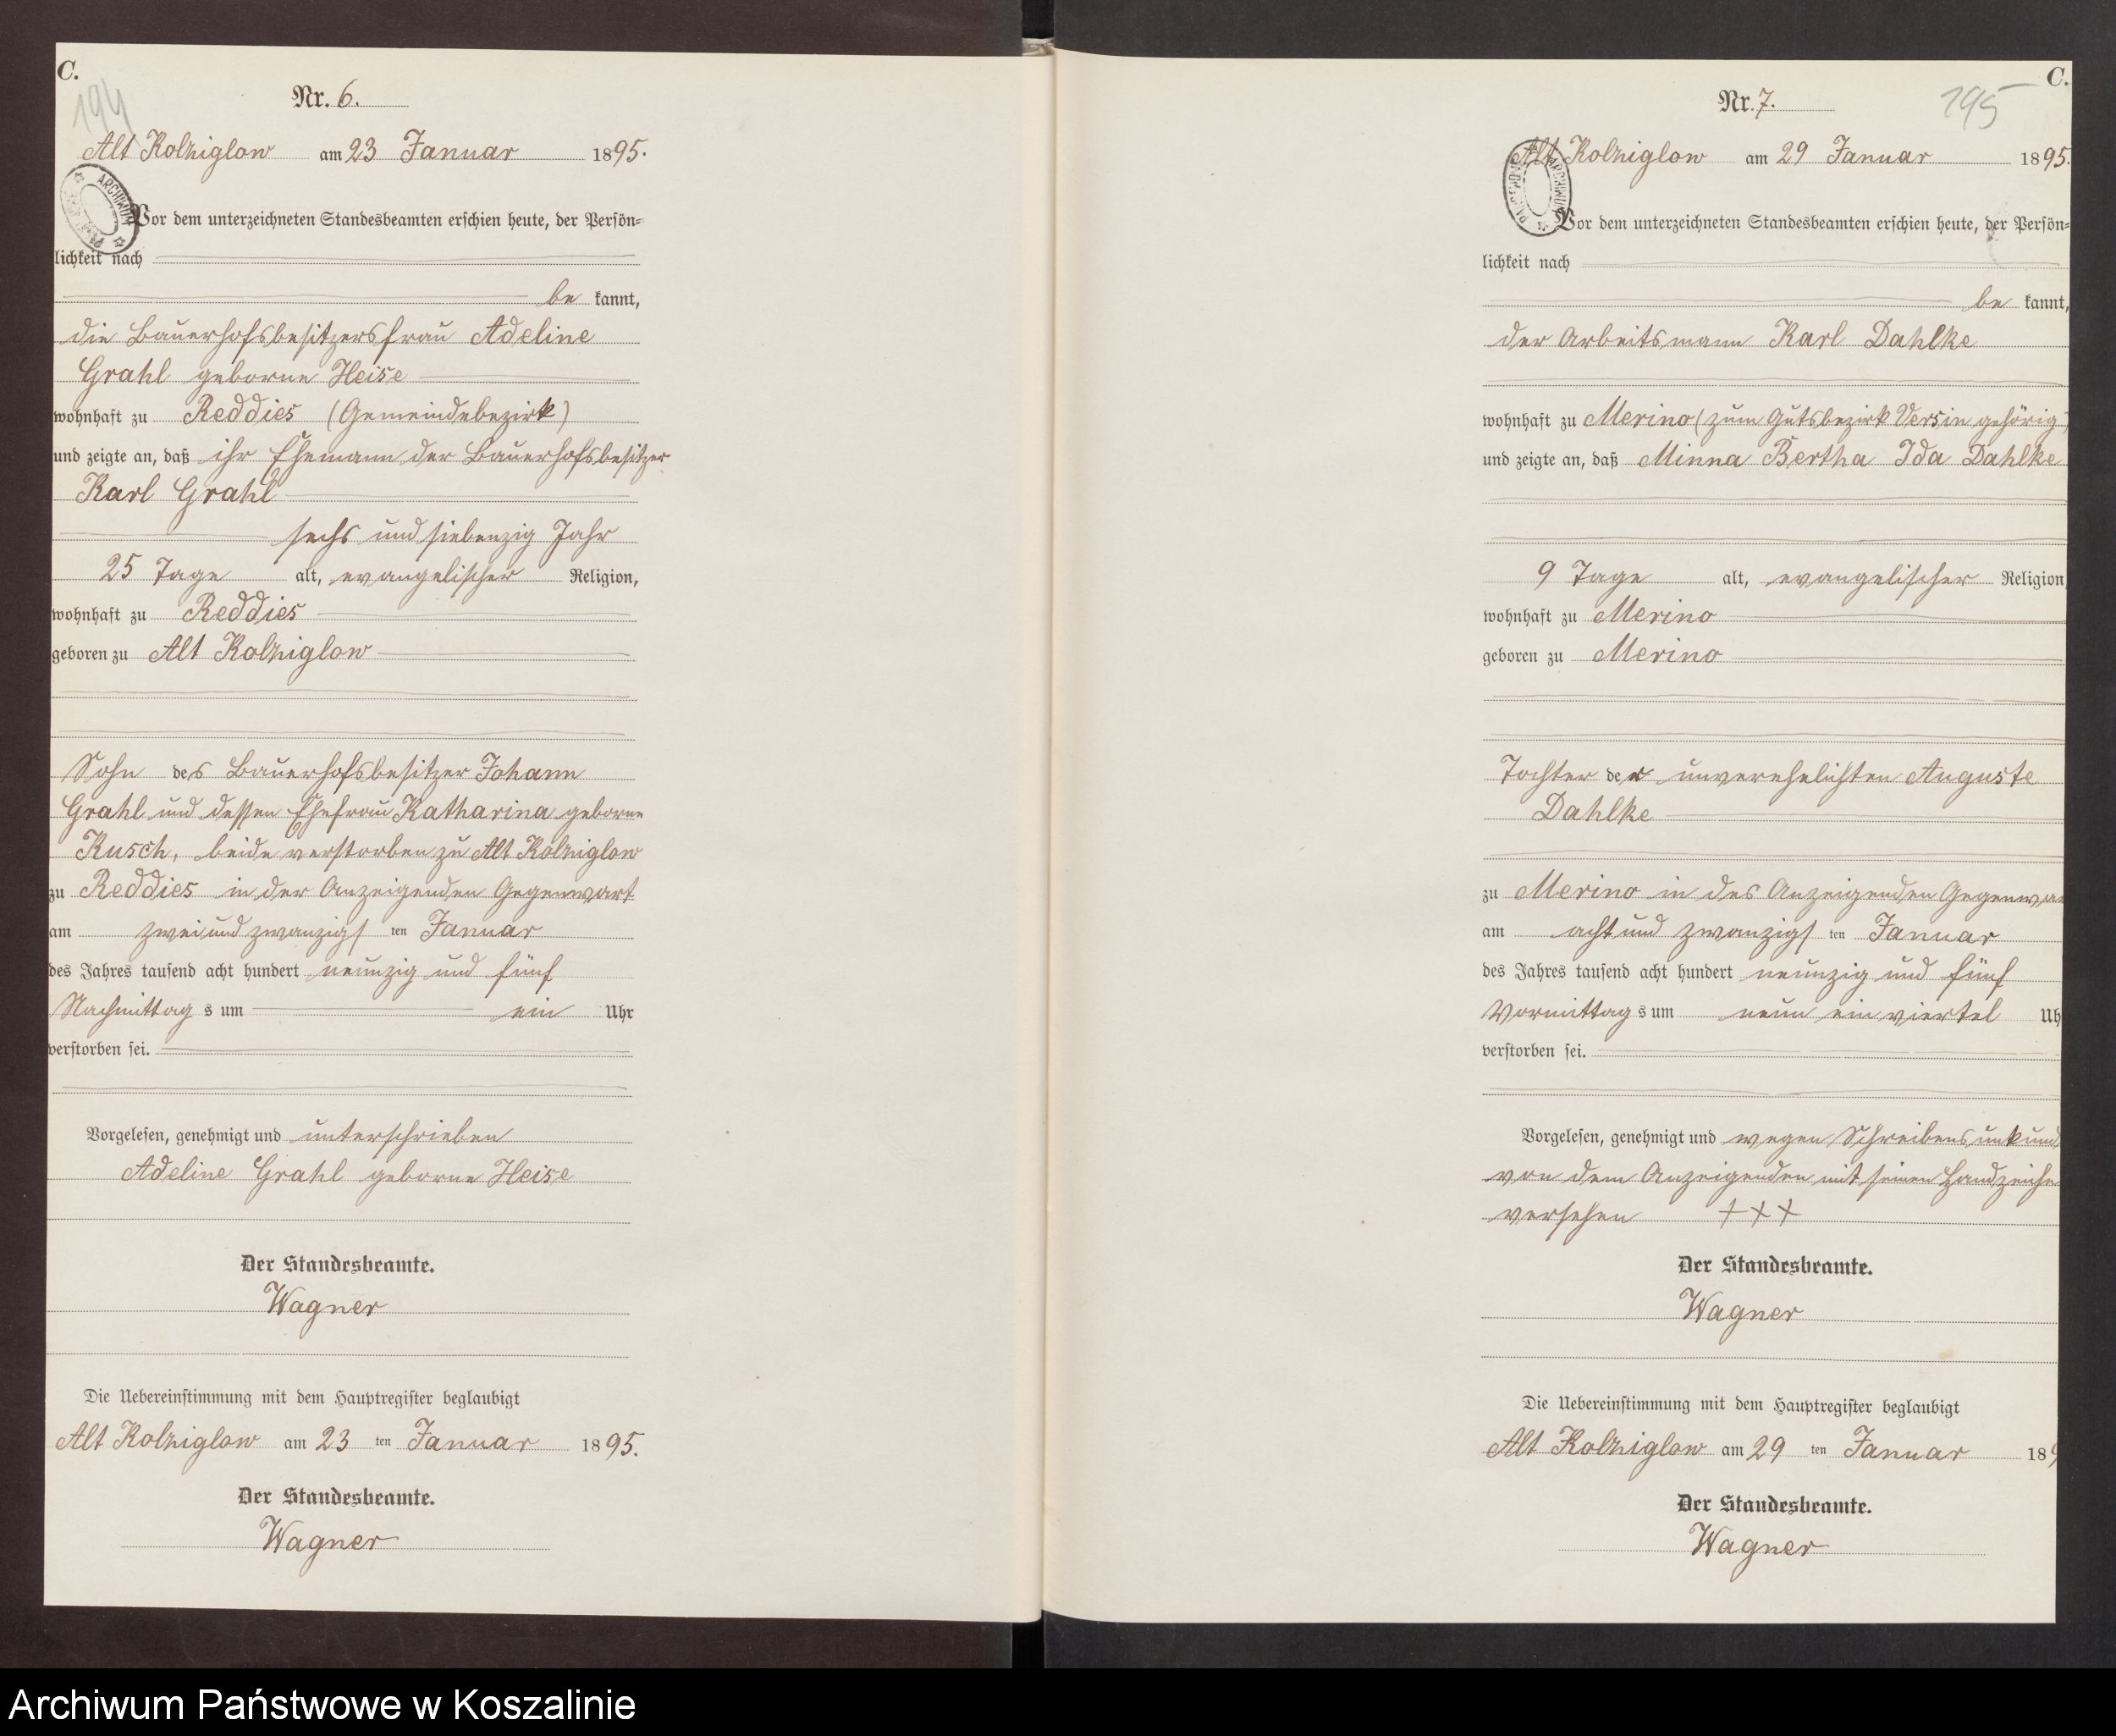 C.
194
Nr. 6.
Alt Kolziglow am 23 Januar 1895.
ARCHIWUM
Vor dem unterzeichneten Standesbeamten erschien heute, der Persön-
lichkeit nach
be kannt,
die Bauerhofsbesitzersfrau Adeline
Grahl geborne Heise
wohnhaft zu Reddies (Gemeindebezirk)
und zeigte an, daß ihr Ehemann der Bauerhofsbesitzer
Karl Grahl
sechs und siebenzig Jahr
25 Tage alt, evangelischer Religion,
wohnhaft zu Reddies
geboren zu Alt Kolziglow
Sohn des Bauerhofsbesitzer Johann
Grahl und dessen Ehefrau Katharina geborne
Kusch, beide verstorben zu Alt Kolziglow
zu Reddies in der Anzeigenden Gegenwart
am zwei und zwanzigs ten Januar
des Jahres tausend acht hundert neunzig und fünf
Nachmittag s um ein Uhr
verstorben sei.
Vorgelesen, genehmigt und unterschrieben
Adeline Grahl geborne Heise
Der Standesbeamte.
Wagner
Die Uebereinstimmung mit dem Hauptregister beglaubigt
Alt Kolziglow am 23 ten Januar 1895.
Der Standesbeamte.
Wagner
C.
195
Nr. 7.
Alt Kolziglow am 29 Januar 1895.
ARCHIWUM
Vor dem unterzeichneten Standesbeamten erschien heute, der Persön-
lichkeit nach
be kannt,
der Arbeitsmann Karl Dahlke
wohnhaft zu Merino (zum Gutsbezirk Versin gehörig)
und zeigte an, daß Minna Bertha Ida Dahlke
9 Tage alt, evangelischer Religion
wohnhaft zu Merino
geboren zu Merino
Tochter der unverehelichten Auguste
Dahlke
zu Merino in des Anzeigenden Gegenwar
am acht und zwanzigs ten Januar
des Jahres tausend acht hundert neunzig und fünf
Vormittag s um neun ein viertel Uh
verstorben sei.
Vorgelesen, genehmigt und wegen Schreibensunkund
von dem Anzeigenden mit seinen Handzeiche
versehen +++
Der Standesbeamte.
Wagner
Die Uebereinstimmung mit dem Hauptregister beglaubigt
Alt Kolziglow am 29 ten Januar 189
Der Standesbeamte.
Wagner
Archiwum Państwowe w Koszalinie